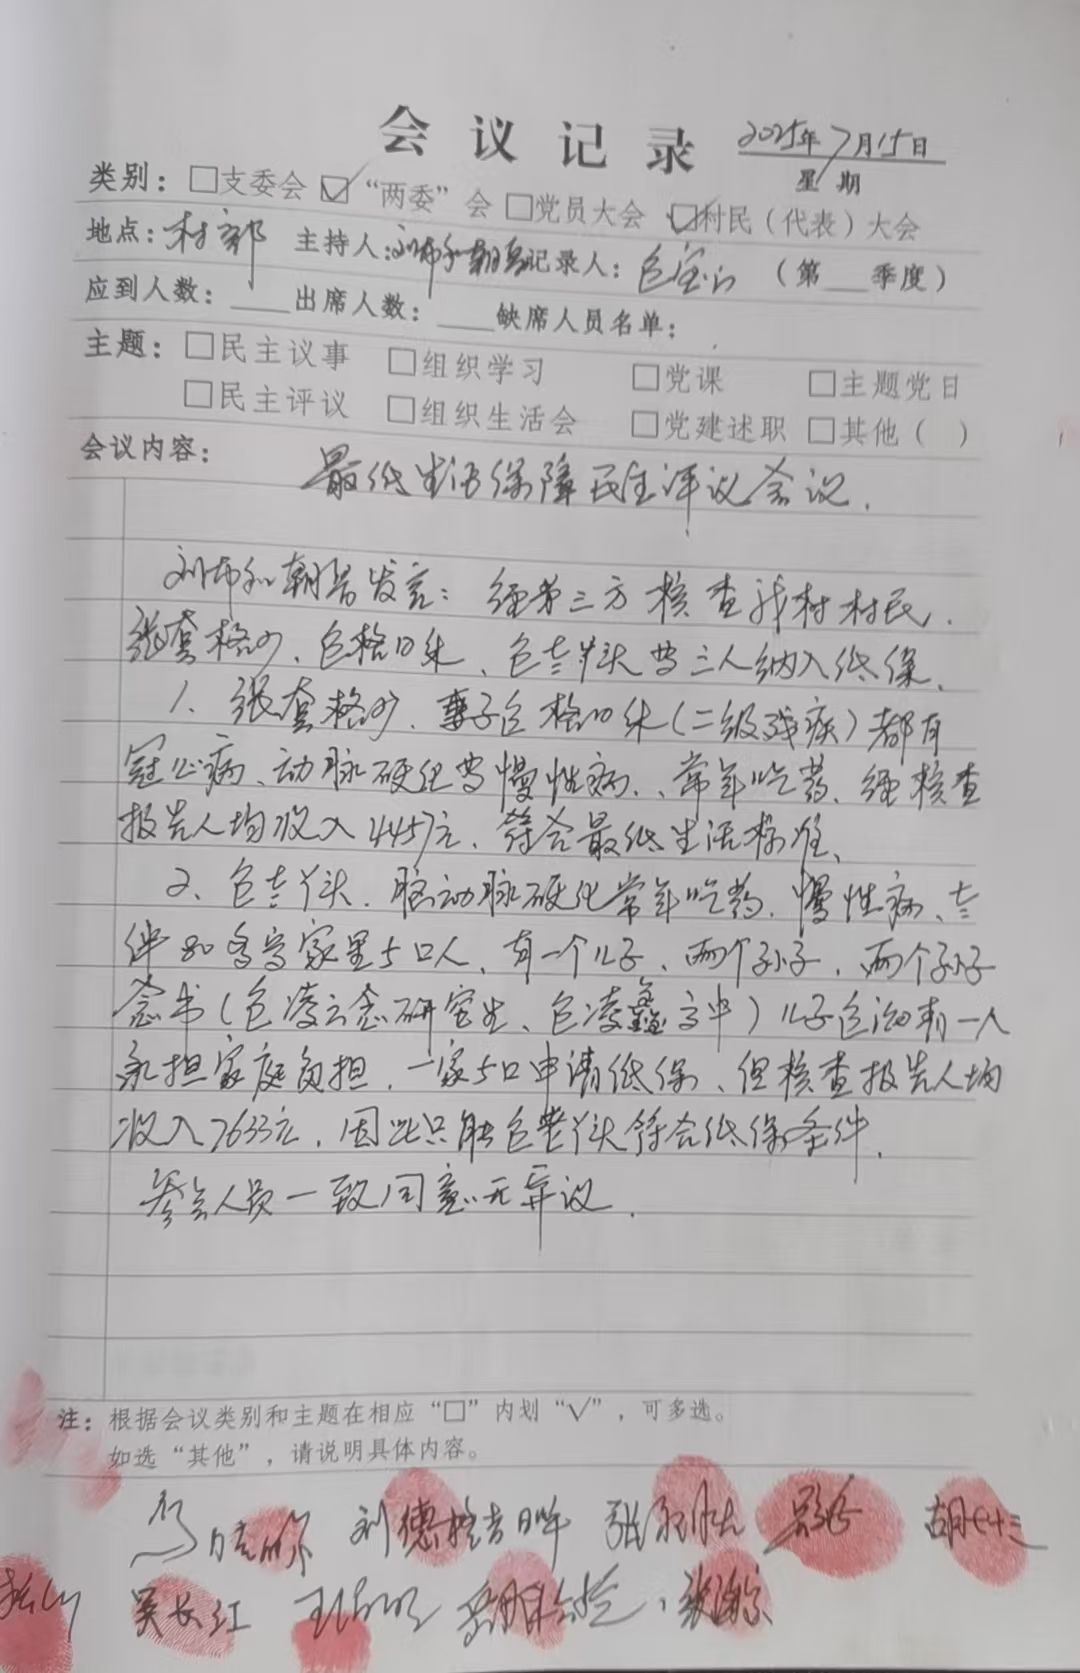 会议记录 2025年7月15日
星期
类别：□支委会 ☑“两委”会 □党员大会 ☑村民（代表）大会
地点：村部 主持人：刘布和朝鲁 记录人：包宝山 （第___季度）
应到人数：____出席人数：____缺席人员名单：
主题：□民主议事 □组织学习 □党课 □主题党日
□民主评议 □组织生活会 □党建述职 □其他（ ）
会议内容：
最低生活保障民主评议会议.
刘布和朝鲁发言：经第三方核查我村村民.
张套格 、包格 、包 丫头等三人纳入低保、
1、张套格 、妻子包格 （二级残疾）都有
冠心病、动脉硬化等慢性病、、常年吃药、经核查
报告人均收入4457元、符合最低生活标准、
2、包 丫头、脑动脉硬化常年吃药、慢性病、
80多岁家里5口人、有一个儿子、两个孙子、两个孙子
念书（包凌云念研究生、包凌鑫高中）儿子包 一人
承担家庭负担、一家5口申请低保、但核查报告人均
收入7633元、因此只能包 丫头符合低保条件.
参会人员一致同意无异议.
注：根据会议类别和主题在相应“□”内划“√”，可多选。
如选“其他”，请说明具体内容。
刘德 张
吴长江